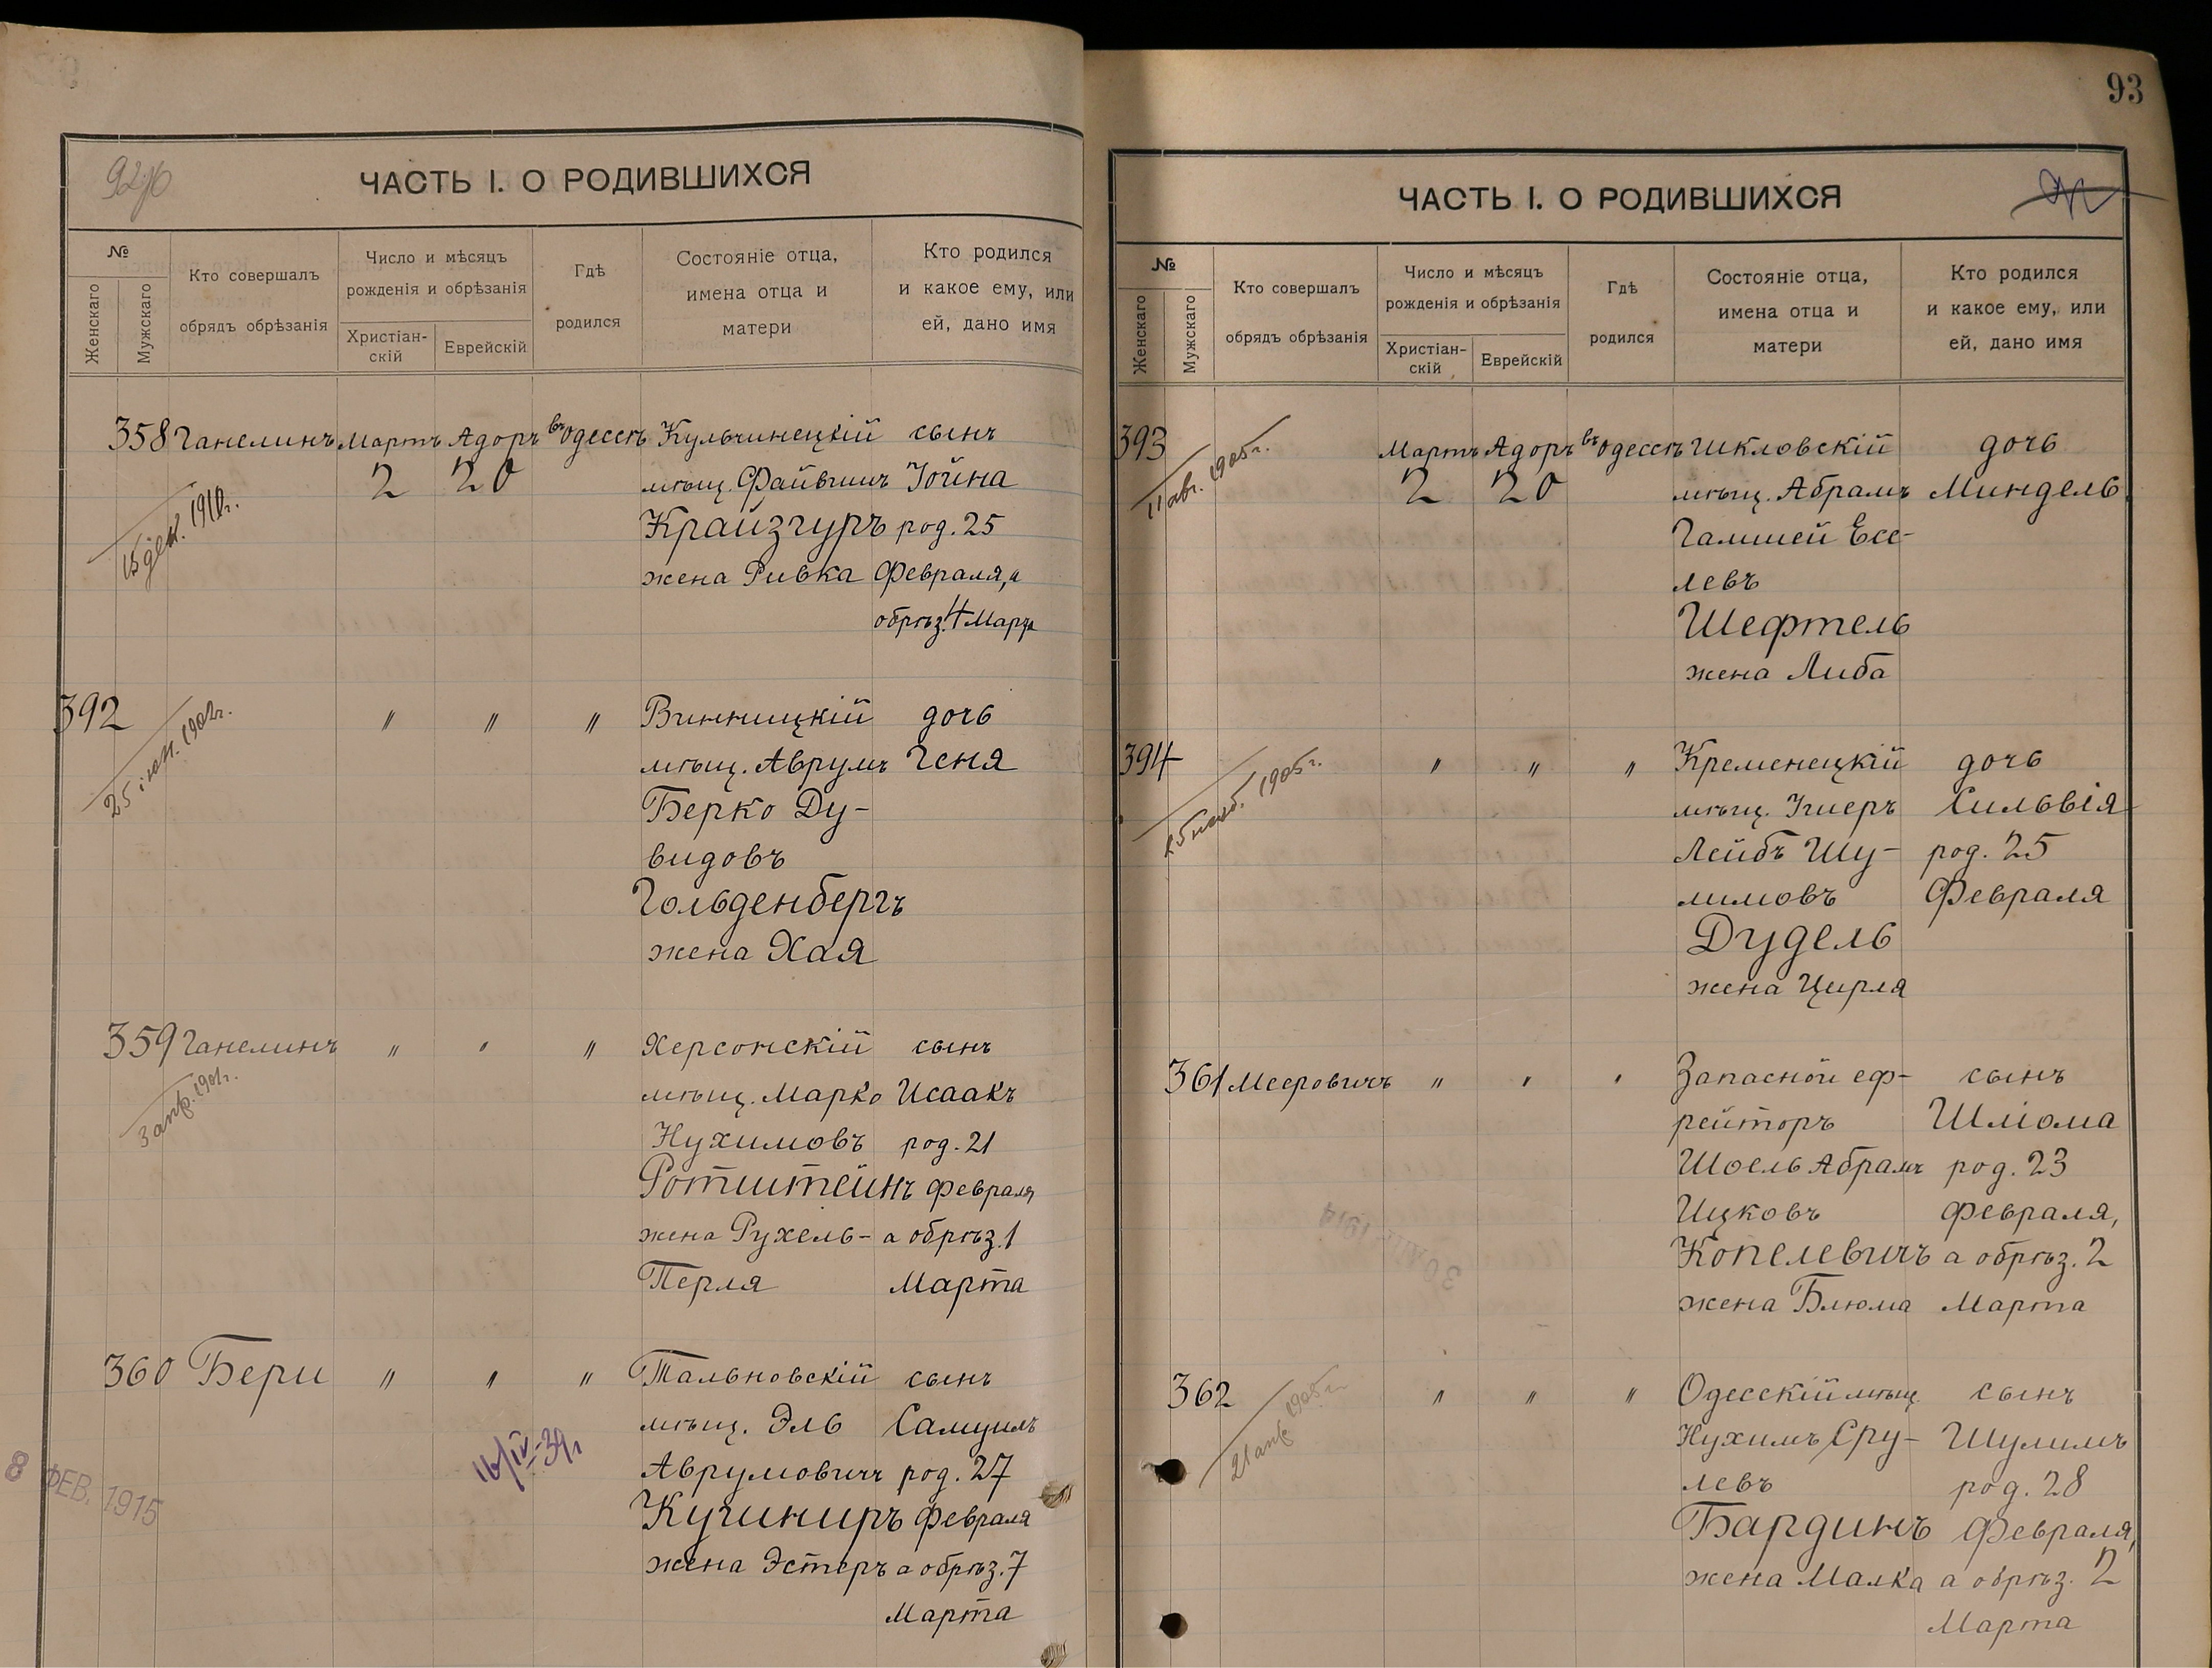 92об
ЧАСТЬ I. О РОДИВШИХСЯ
№
Женскаго
Мужскаго
Кто совершалъ
обрядъ обрѣзанія
Число и мѣсяцъ
рожденія и обрѣзанія
Христіан-
скій
Еврейскій
Гдѣ
родился
Состояніе отца,
имена отца и
матери
Кто родился
и какое ему, или
ей, дано имя
358 Ганелинъ Мартъ Адоръ въ Одессѣ Кульчинецкій сынъ
2 20 мѣщ. Файвишъ Іойна
Крайзгуръ род. 25
15 дек. 1910г.
жена Ривка Февраля, а
обрѣз. 4 Марта
392 " " " Винницкій дочь
25 іюн. 1902г.
мѣщ. Аврумъ Геня
Берко Ду-
видовъ
Гольденбергъ
жена Хая
359 Ганелинъ " " " Херсонскій сынъ
3 апр. 1901г.
мѣщ. Марко Исаакъ
Нухимовъ род. 21
Ротштейнъ Февраля
жена Рухель- а обрѣз. 1
Перля Марта
360 Бери " " " Тальновскій сынъ
мѣщ. Эль Самуилъ
16/IV-39г
Аврумовичъ род. 27
8 ФЕВ. 1915
Кушниръ Февраля
жена Эстеръ а обрѣз. 7
Марта
93
ЧАСТЬ I. О РОДИВШИХСЯ
№
Женскаго
Мужскаго
Кто совершалъ
обрядъ обрѣзанія
Число и мѣсяцъ
рожденія и обрѣзанія
Христіан-
скій
Еврейскій
Гдѣ
родился
Состояніе отца,
имена отца и
матери
Кто родился
и какое ему, или
ей, дано имя
393 Мартъ Адоръ въ Одессѣ Шкловскій дочь
11 авг. 1905г.
2 20 мѣщ. Абрамъ Миндель
Гамшей Есе-
левъ
Шефтель
жена Либа
394 " " " Кременецкій дочь
1905г.
мѣщ. Ушеръ Сильвія
Лейбъ Шу- род. 25
лимовъ Февраля
Дудель
жена Цирля
361 Мееровичъ " " " Запасной еф- сынъ
рейторъ Шліома
Шоель Абрамъ род. 23
Ицковъ Февраля,
Копелевичъ а обрѣз. 2
жена Блюма Марта
30 1914
362 " " " Одесскій мѣщ. сынъ
21 апр. 1908г.
Нухимъ Сру- Шулимъ
левъ род. 28
Бардинъ Февраля,
жена Малка а обрѣз. 2
Марта